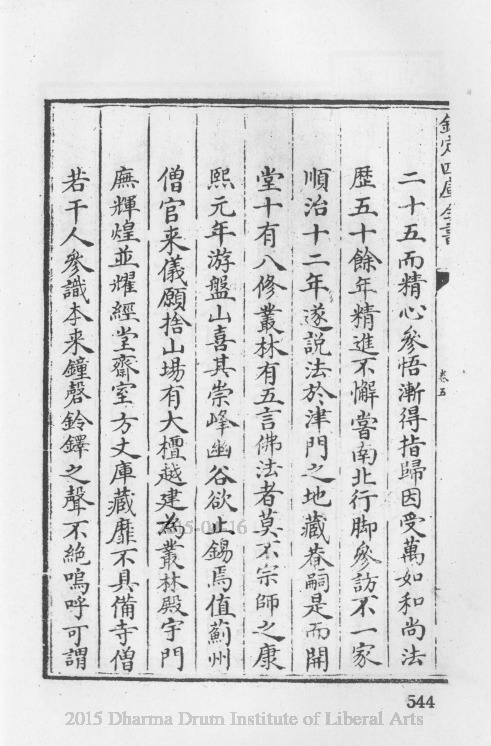 欽定四庫全書
卷五
二十五而精心參悟漸得指歸因受萬如和尚法
歴五十餘年精進不懈嘗南北行脚參訪不一家
順治十二年遂説法於津門之地藏菴嗣是而開
堂十有八修叢林有五言佛法者莫不宗師之康
熙元年游盤山喜其崇峰幽谷欲止錫焉值薊州
僧官来儀願捨山場有大檀越建為叢林殿宇門
廡輝煌並耀經堂齋室方丈庫藏靡不具備寺僧
若干人參識本来鐘磬鈴鐸之聲不絶嗚呼可謂
544
2015 Dharma Drum Institute of Liberal Arts